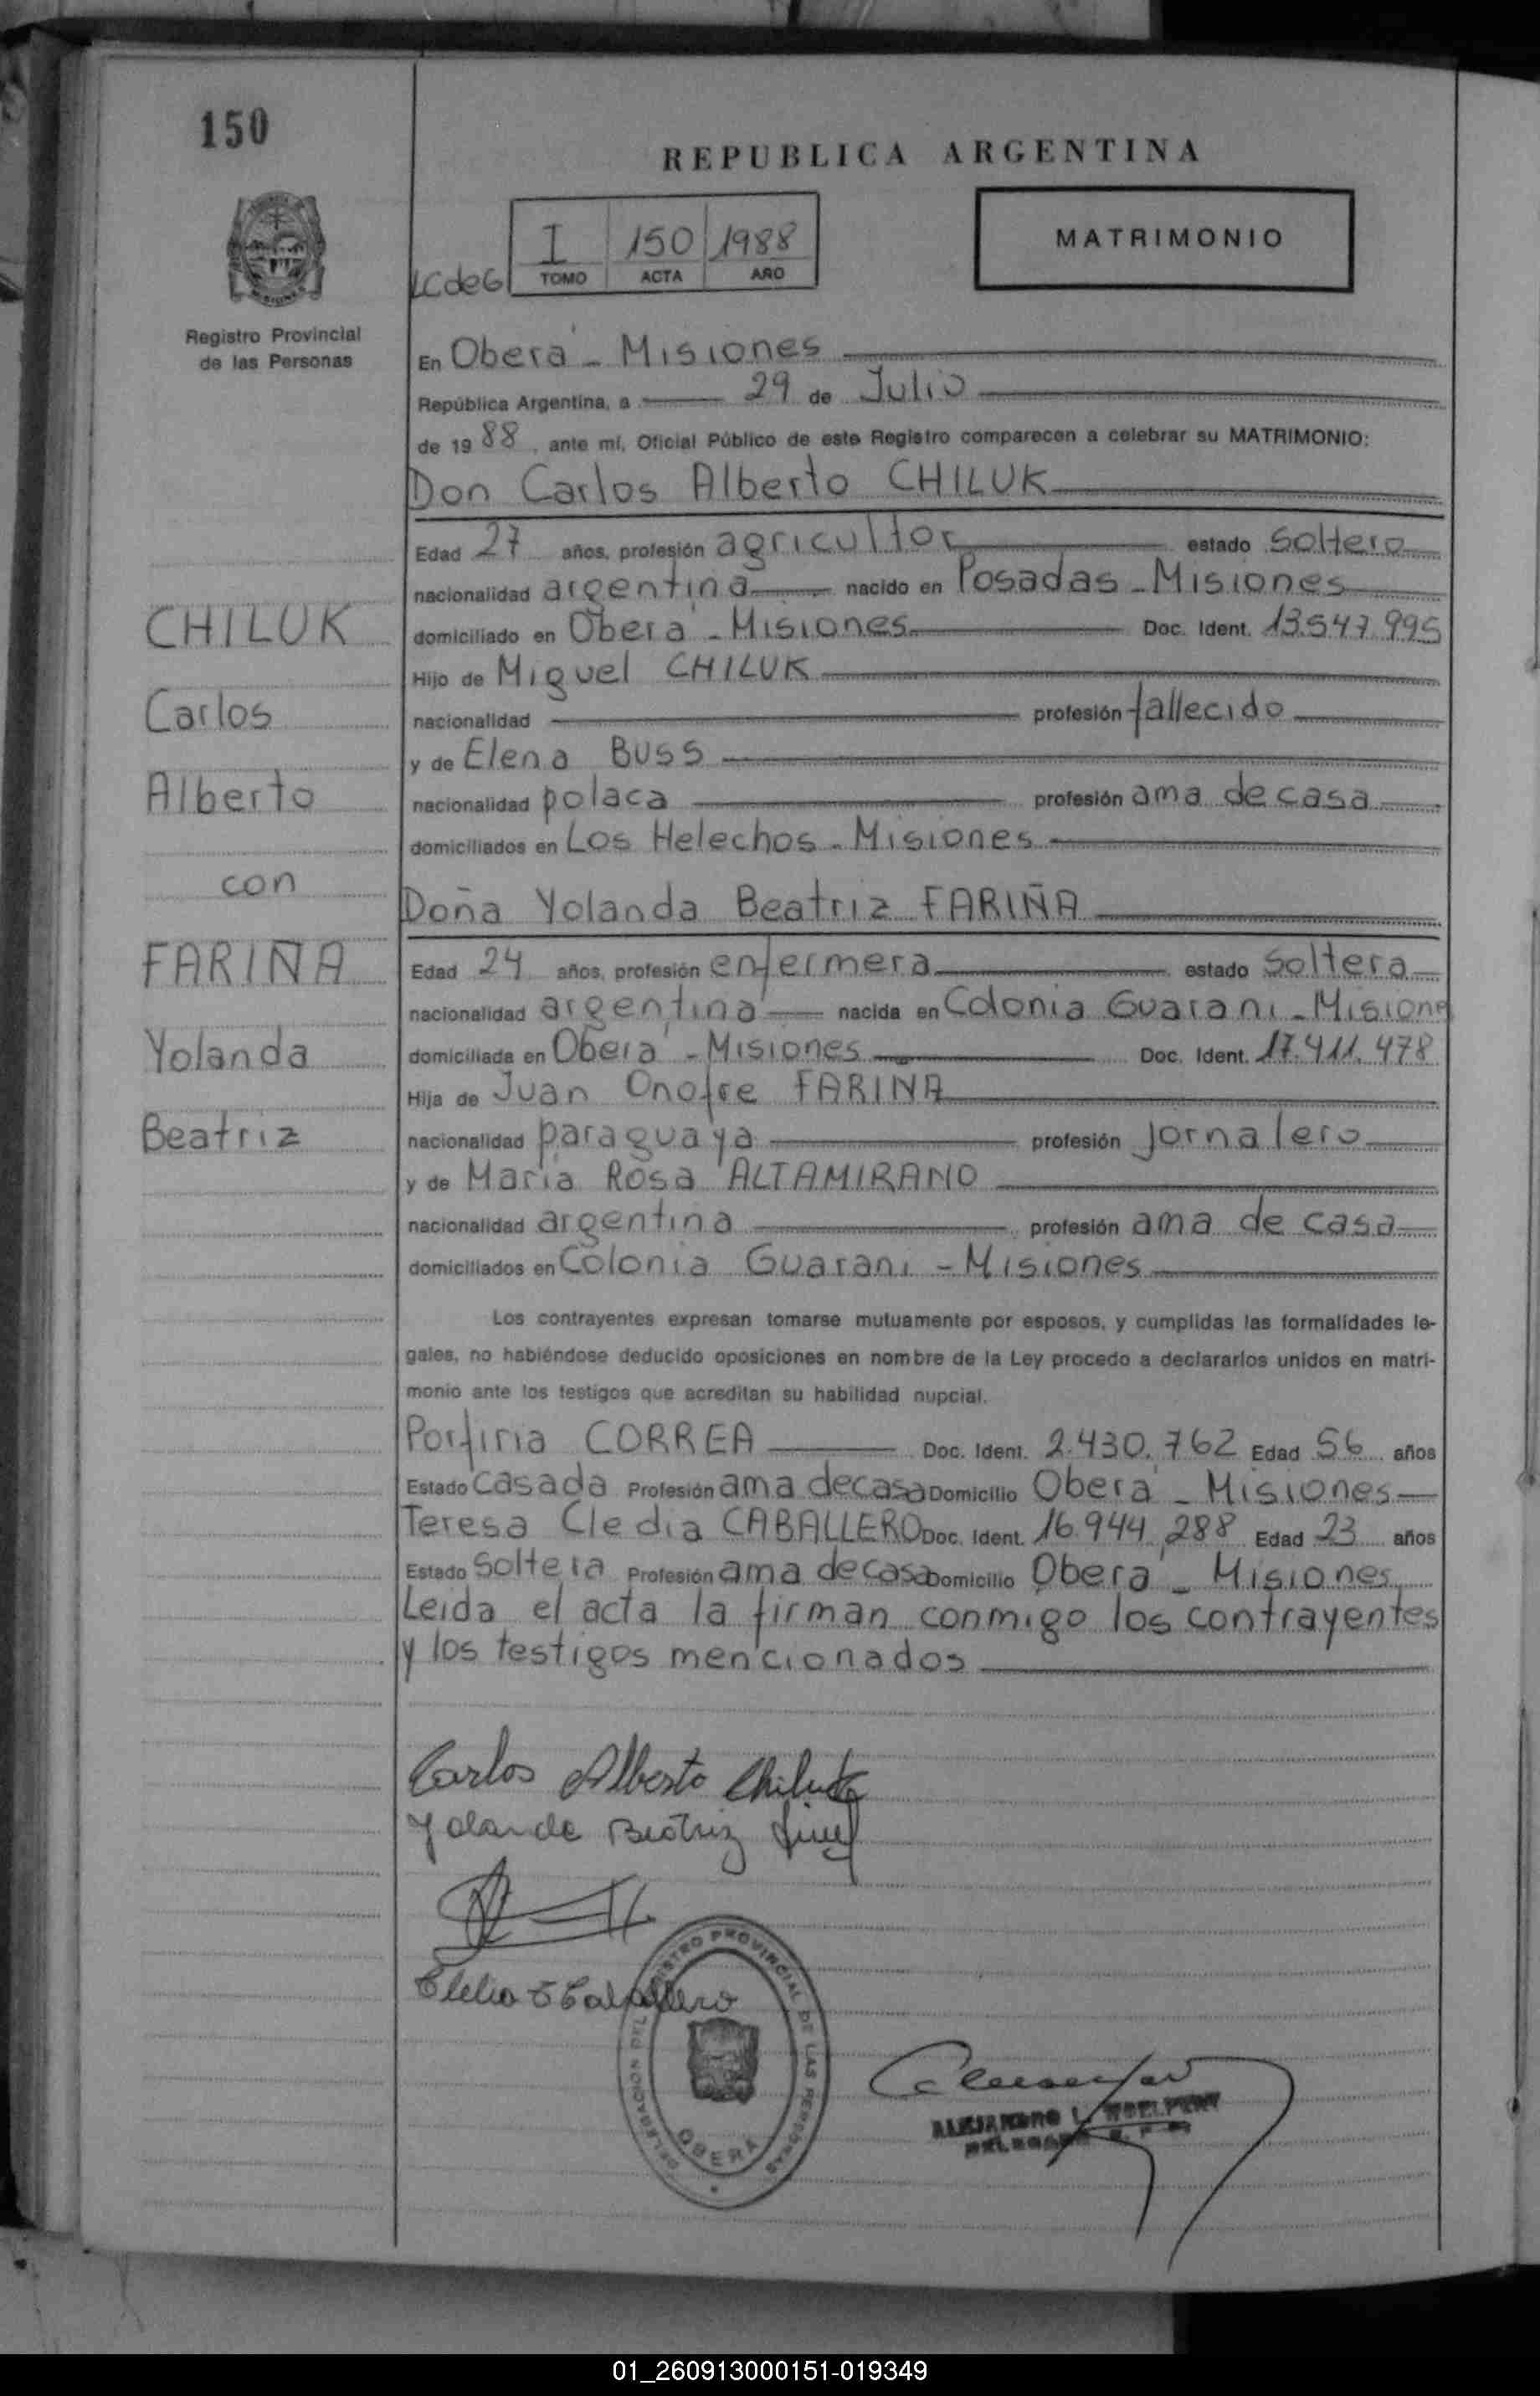 150
REPUBLICA ARGENTINA
I 150 1988
TOMO ACTA AÑO
MATRIMONIO
LCdeG
Registro Provincial
de las Personas
En Oberá - Misiones
República Argentina, a 29 de Julio
de 19 88, ante mí, Oficial Público de este Registro comparecen a celebrar su MATRIMONIO:
Don Carlos Alberto CHILUK
Edad 27 años, profesión agricultor estado soltero
nacionalidad argentina nacido en Posadas - Misiones
CHILUK
domiciliado en Oberá - Misiones Doc. Ident. 13.547.995
Hijo de Miguel CHILUK
Carlos
nacionalidad profesión fallecido
y de Elena BUSS
Alberto
nacionalidad polaca profesión ama de casa
domiciliados en Los Helechos - Misiones
con
Doña Yolanda Beatriz FARIÑA
FARIÑA
Edad 24 años, profesión enfermera estado soltera
nacionalidad argentina nacida en Colonia Guarani - Misione
Yolanda
domiciliada en Oberá - Misiones Doc. Ident. 17.411.478
Hija de Juan Onofre FARINA
Beatriz
nacionalidad paraguaya profesión jornalero
y de María Rosa ALTAMIRANO
nacionalidad argentina profesión ama de casa
domiciliados en Colonia Guarani - Misiones
Los contrayentes expresan tomarse mutuamente por esposos, y cumplidas las formalidades le-
gales, no habiéndose deducido oposiciones en nombre de la Ley procedo a declararlos unidos en matri-
monio ante los testigos que acreditan su habilidad nupcial.
Porfiria CORREA Doc. Ident. 2.430.762 Edad 56 años
Estado casada Profesión ama de casa Domicilio Oberá - Misiones
Teresa Cledia CABALLERO Doc. Ident. 16.944.288 Edad 23 años
Estado soltera Profesión ama de casa Domicilio Oberá - Misiones
Leida el acta la firman conmigo los contrayentes
y los testigos mencionados
Carlos Alberto Chiluk
Yolanda Beatriz
DELEGACION DEL REGISTRO PROVINCIAL DE LAS PERSONAS
OBERA
ALEJANDRO L.
01_260913000151-019349